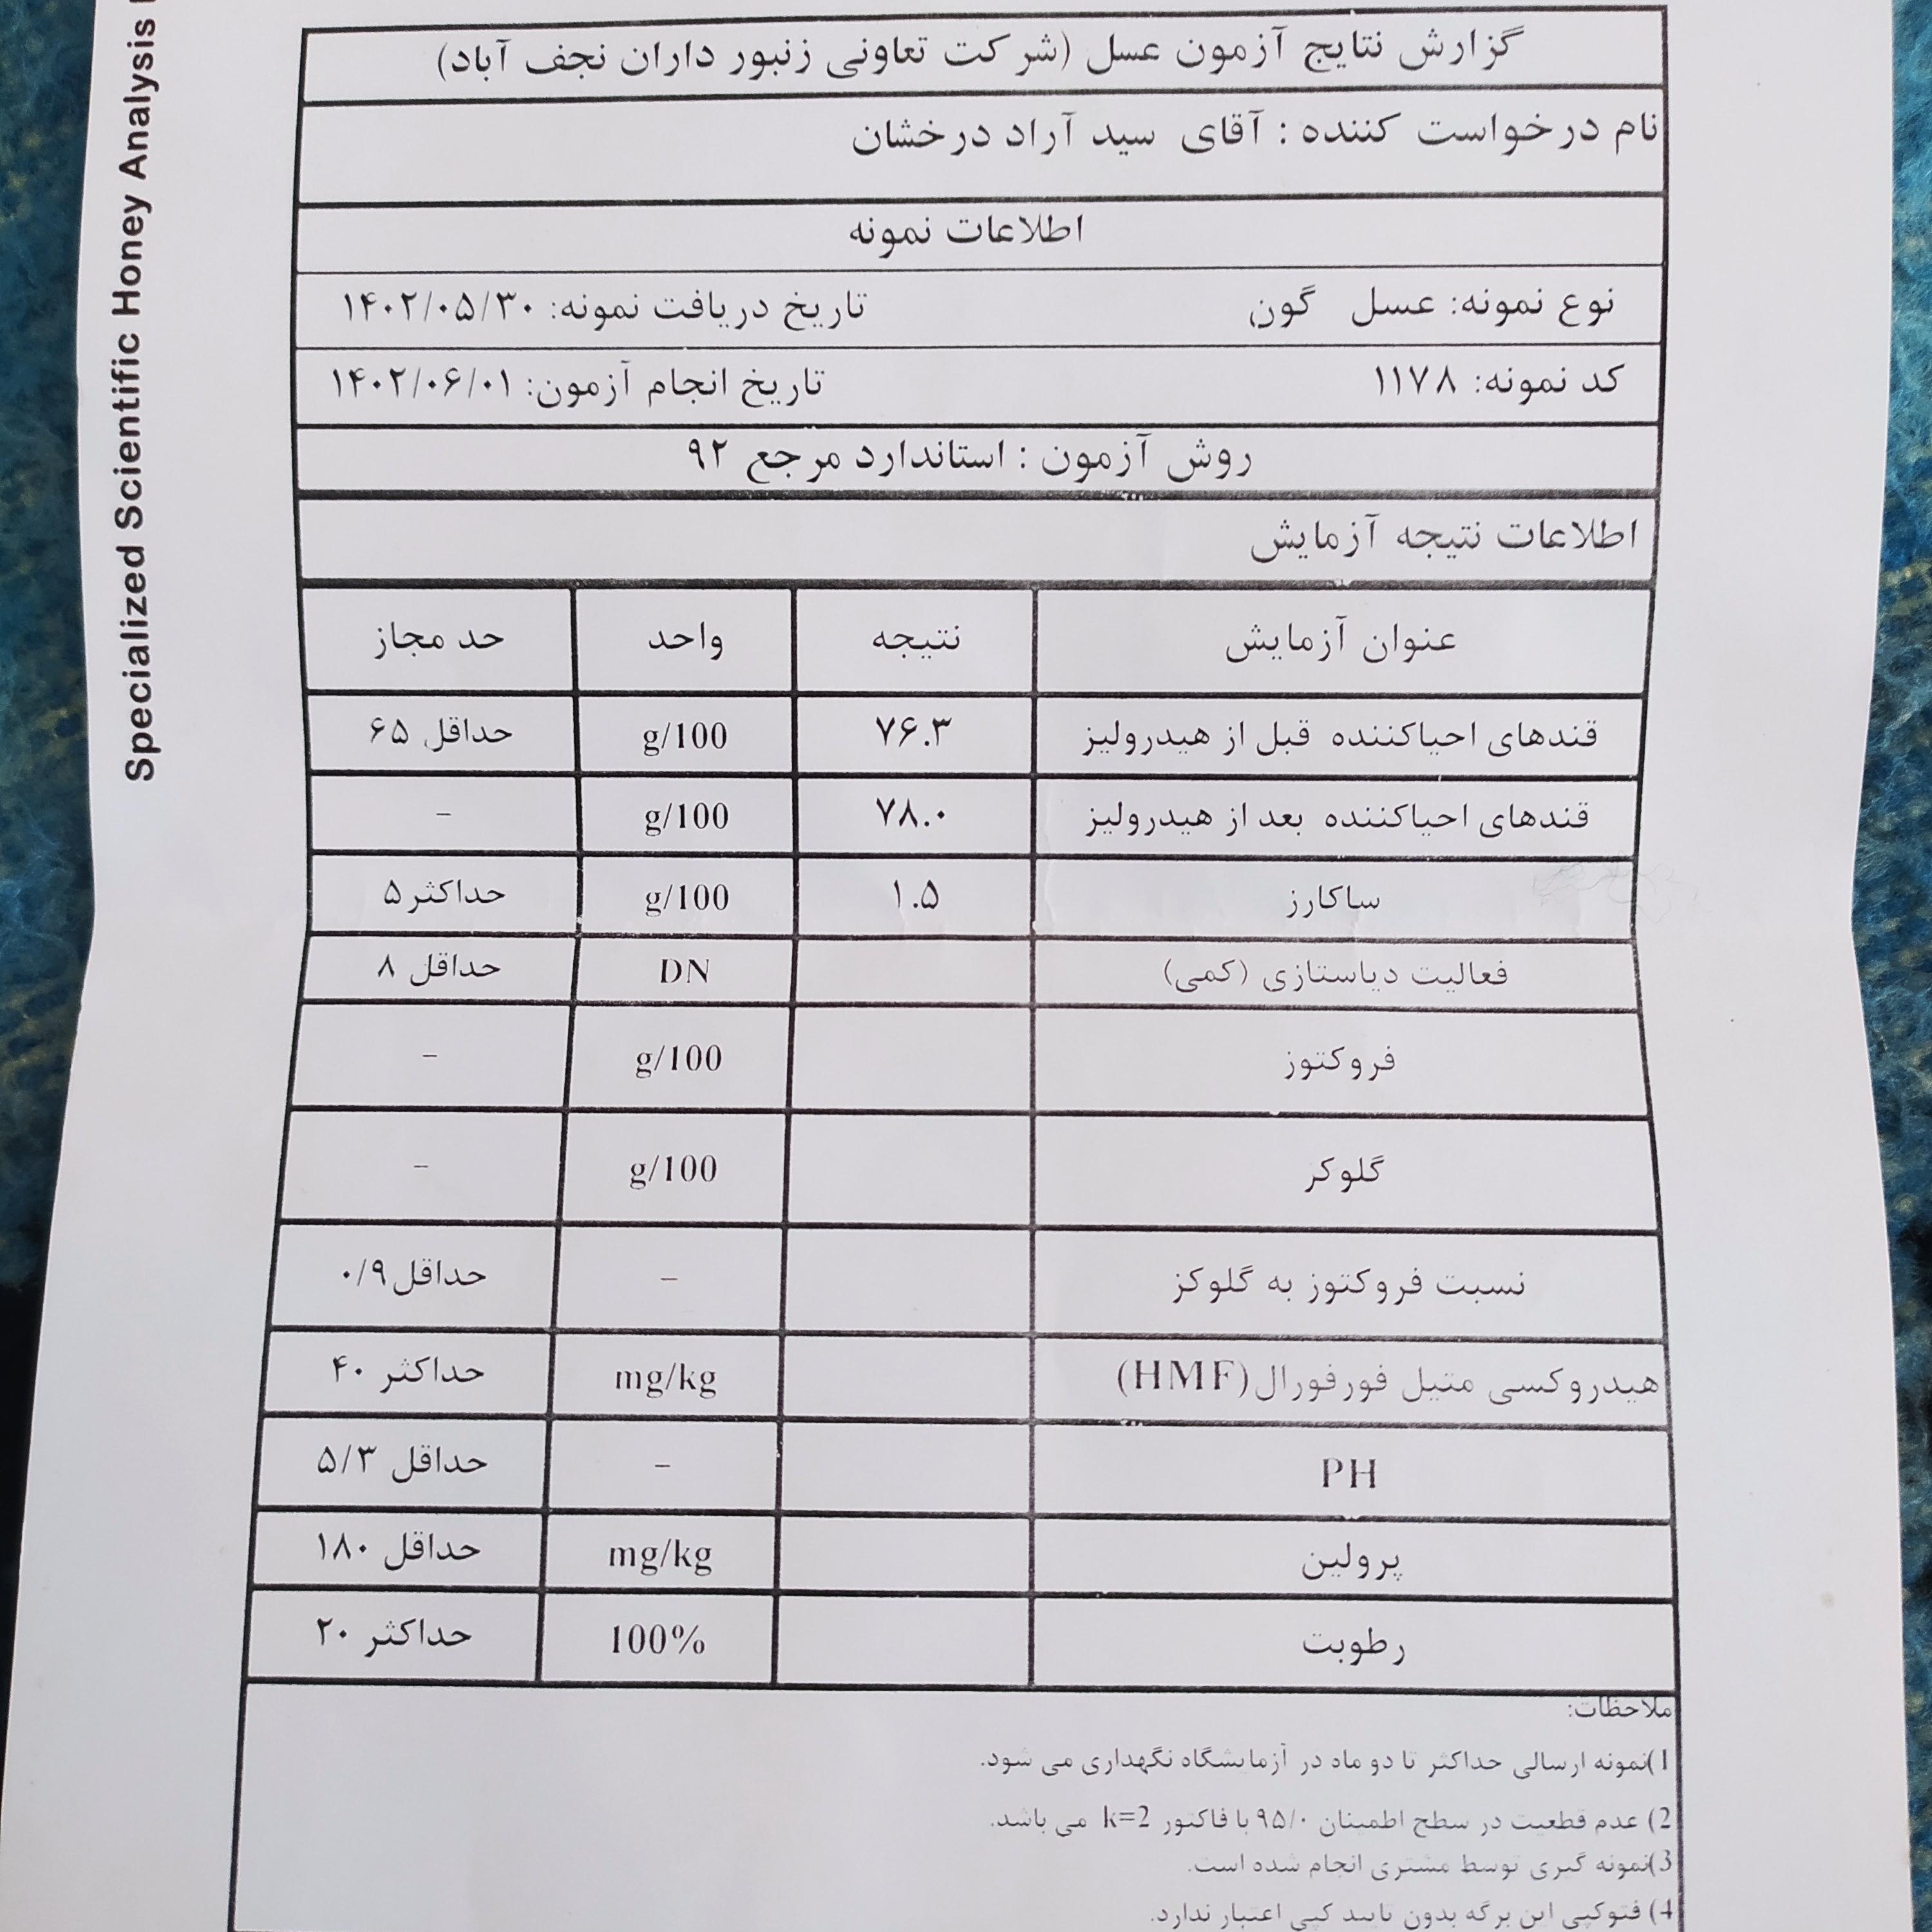 Specialized Scientific Honey Analysis
گزارش نتایج آزمون عسل (شرکت تعاونی زنبور داران نجف آباد)
نام درخواست کننده : آقای سید آراد درخشان
اطلاعات نمونه
نوع نمونه: عسل گون تاریخ دریافت نمونه: ۱۴۰۲/۰۵/۳۰
کد نمونه: ۱۱۷۸ تاریخ انجام آزمون: ۱۴۰۲/۰۶/۰۱
روش آزمون : استاندارد مرجع ۹۲
اطلاعات نتیجه آزمایش
عنوان آزمایش نتیجه واحد حد مجاز
قندهای احیاکننده قبل از هیدرولیز ۷۶.۳ g/100 حداقل ۶۵
قندهای احیاکننده بعد از هیدرولیز ۷۸.۰ g/100 -
ساکارز ۱.۵ g/100 حداکثر ۵
فعالیت دیاستازی (کمی) DN حداقل ۸
فروکتوز g/100 -
گلوکر g/100 -
نسبت فروکتوز به گلوکز - حداقل ۰/۹
هیدروکسی متیل فورفورال(HMF) mg/kg حداکثر ۴۰
PH - حداقل ۵/۳
پرولین mg/kg حداقل ۱۸۰
رطوبت 100% حداکثر ۲۰
ملاحظات:
1)نمونه ارسالی حداکثر تا دو ماه در آزمایشگاه نگهداری می شود.
2) عدم قطعیت در سطح اطمینان ۹۵/۰ با فاکتور k=2 می باشد.
3)نمونه گیری توسط مشتری انجام شده است.
4) فتوکپی این برگه بدون تایید کپی اعتبار ندارد.